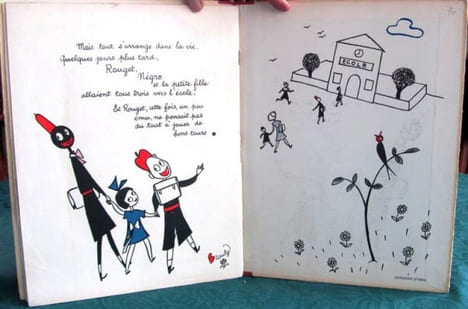 Mais tout s'arrange dans la vie.
Quelques jours plus tard,
Rouget,
Négro
et la petite fille
allaient tous trois vers l'école!
Et Rouget, cette fois, un peu
ému, ne pensait pas
du tout à jouer de
bons tours.
ECOLE